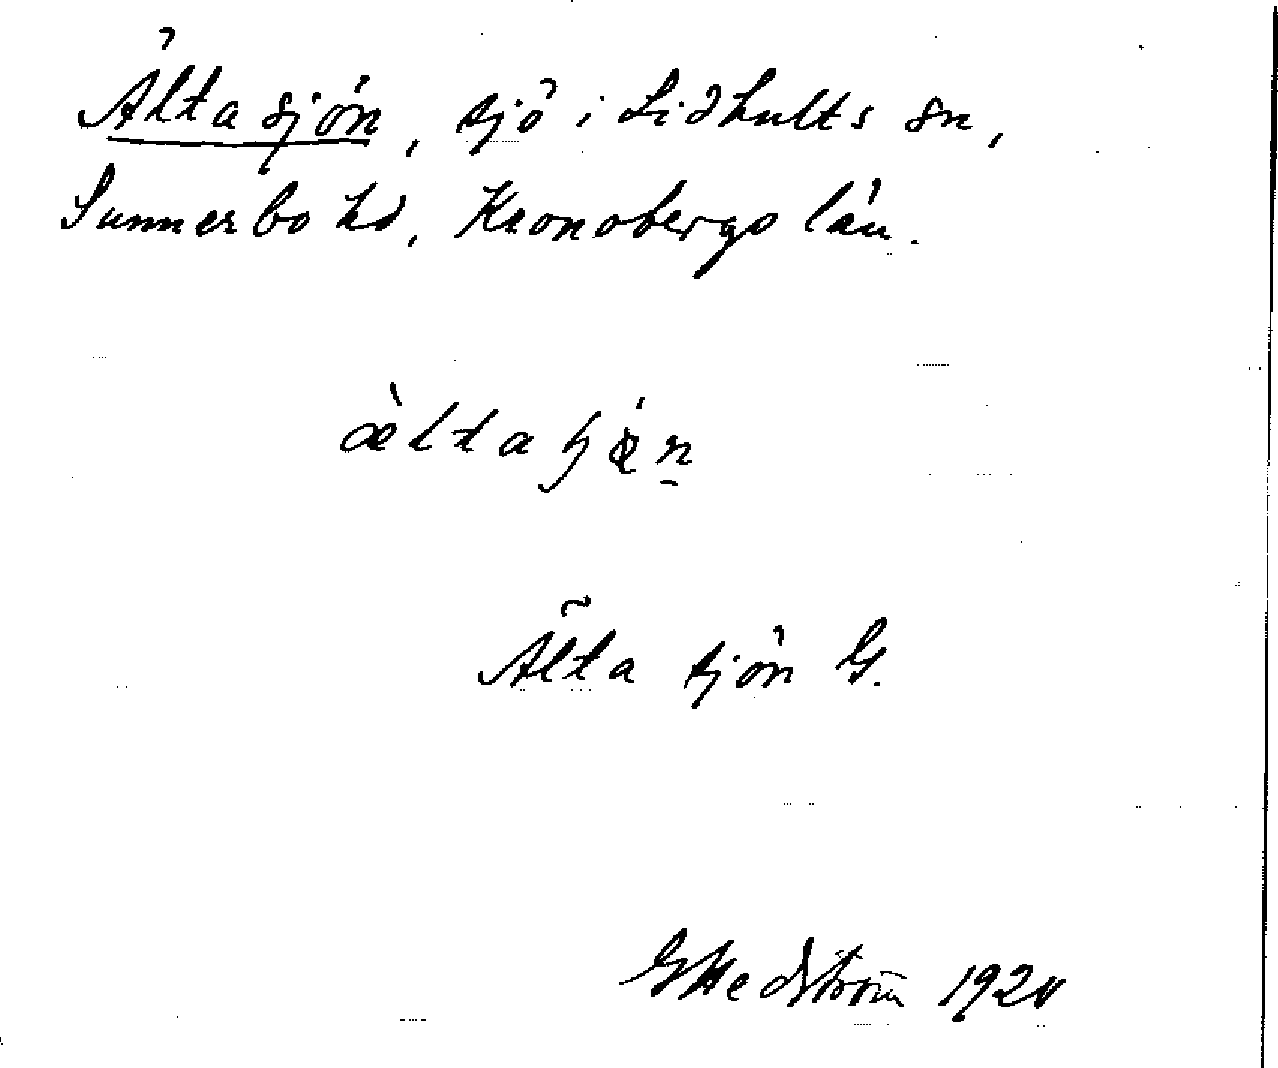 Ältasjön, sjö i Lidhults sn,
Sunnerbo hd, Kronobergs län.
Älta sjön G.
G Hedström 1920